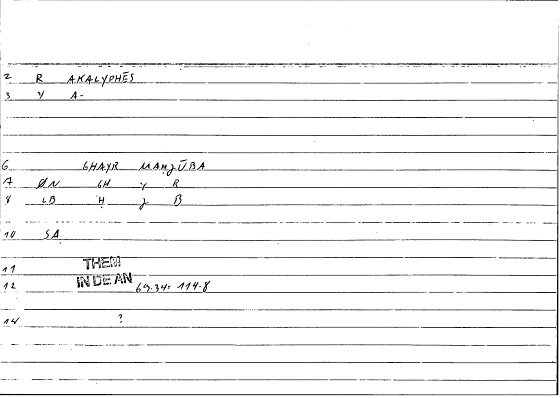 2 R AKALYPHĒS
3 Y A-
6 GHAYR MAHJŪBA
7 ØN GH Y R
8 LB H J B
10 SA
11 THEM
12 IN DE AN 69.34= 114.8
14 ?